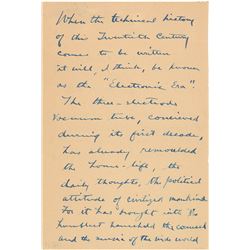 When the technical history
of this Twentieth Century
comes to be written
it will, I think, be known
as the "Electronic Era".
The three-electrode
vacuum tube, conceived
during its first decade,
has already remoulded
the home-life, the
daily thoughts, the political
attitude of civilized mankind.
For it has brought into the
humblest household the counsels
and the music of the wide world